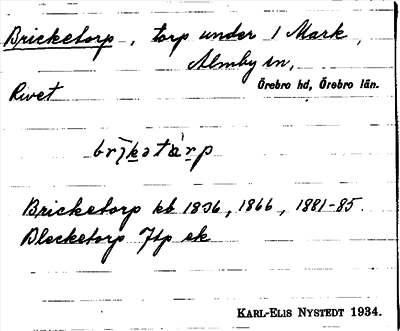 Bricketorp, torp under 1 Mark,
Almby sn,
Örebro hd, Örebro län.
Rivet
Bricketorp kb 1836, 1866, 1881-85.
Blecketorp Jtp ek
KARL-ELIS NYSTEDT 1934.